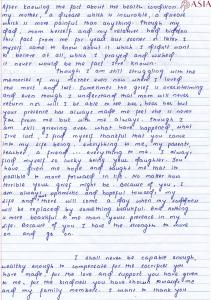 ASIA
After knowing the fact about the health condition of
my mother, a disease which is incurable, a disease
which is more painful than anything. Though my
dad, mom herself and my relatives had hidden
this fact from me for years but sooner or later I
myself came to know about it which I didn't want
to believe at all, which I prayed and wished
it never would be the fact I've known.
Though I am still struggling with the
memories of my mother even now when I loved
the most and lost, sometimes the grief is overwhelming
and even though I understand that mom will never
return nor will I be able to see her, hear her but
your presence has always made me feel she is never
far from me but with me always. Though I
am still grieving over what have happened, what
I've lost, I find myself thankful that you came
into my life being everything to me, my parents,
teacher, a friend everything to me. I always
find myself so lucky being your daughter. You
have given me hope and taught me that is
possible to move forward in life. No matter how
terrible your grief might be. Because of you, I
am always optimistic and hopeful towards my
life and there will come a day when my sadness
will be replaced by something beautiful. And nothing
is more beautiful to me than your presence in my
life. Because of you I have the strength to move
on and go on.
I shall never be capable enough,
wealthy enough to compensate for the sacrifices you
have made, for the love and support you have given
to me, for the kindness you have shown towards me
and my family members. I want to thank you